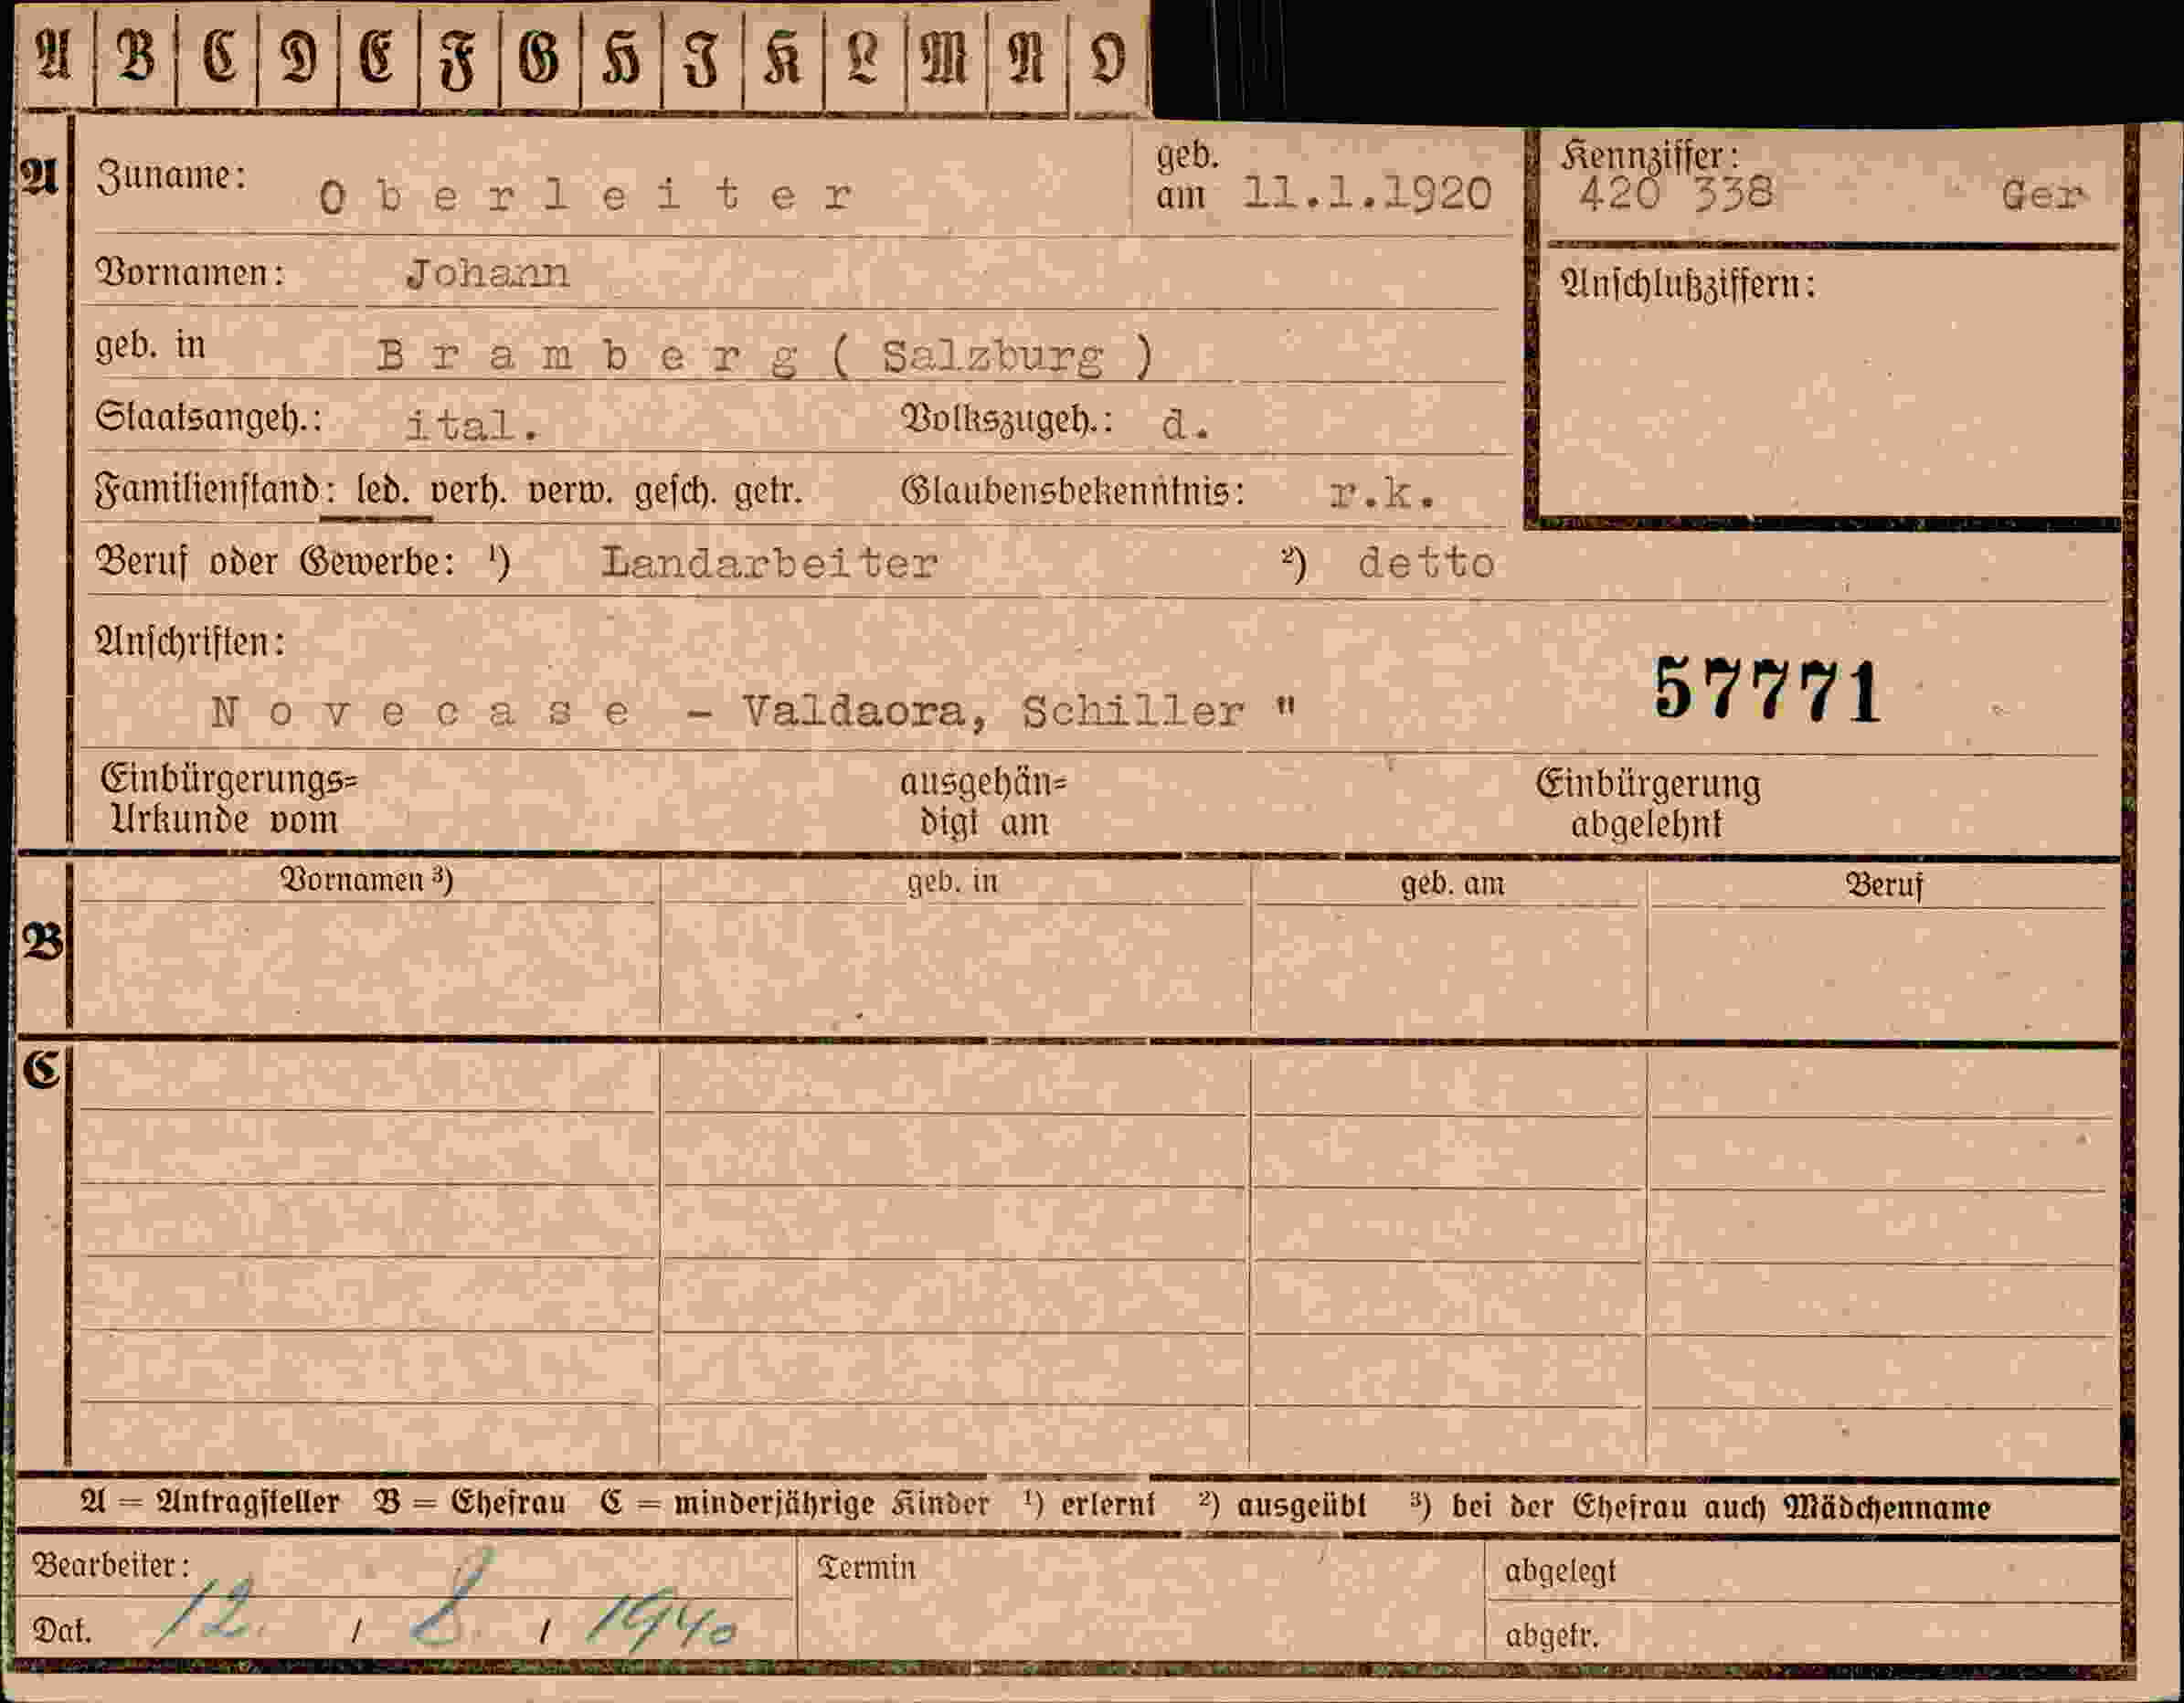 A B C D E F G H I K L M N O
A Zuname: Oberleiter geb. am 11.1.1920 Kennziffer: 420 338 Ger
Vornamen: Johann Anschlußziffern:
geb. in Bramberg ( Salzburg )
Staatsangeh.: ital. Volkszugeh.: d.
Familienstand: led. verh. verw. gesch. getr. Glaubensbekenntnis: r.k.
Beruf oder Gewerbe: ¹) Landarbeiter ²) detto
Anschriften:
57771
Novecase - Valdaora, Schiller "
Einbürgerungs= ausgehän= Einbürgerung
Urkunde vom digt am abgelehnt
Vornamen ³) geb. in geb. am Beruf
B
C
A = Antragsteller B = Ehefrau C = minderjährige Kinder ¹) erlernt ²) ausgeübt ³) bei der Ehefrau auch Mädchenname
Bearbeiter: Termin abgelegt
Dat. 12. / 8. / 1940 abgetr.